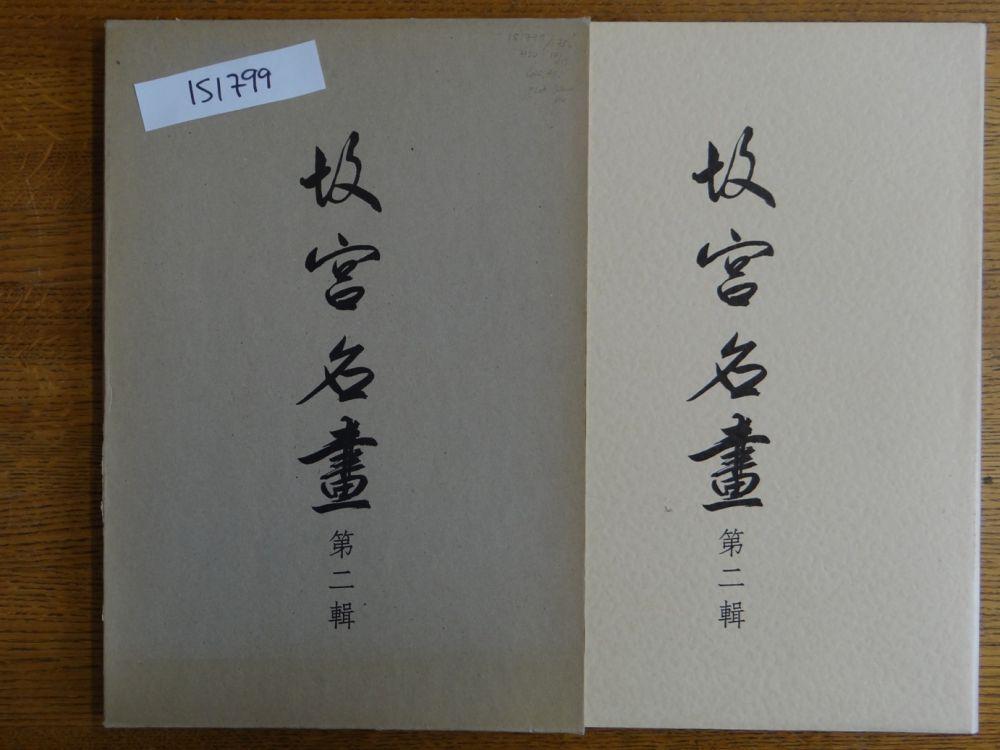 151799
故宮名畫
第二輯
故宮名畫
第二輯